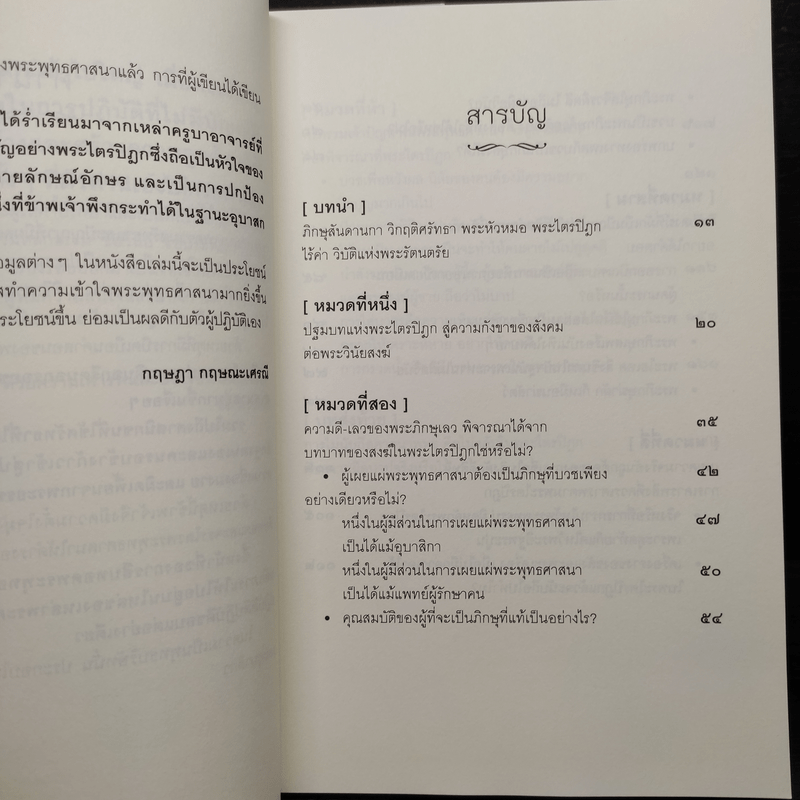 งพระพุทธศาสนาแล้ว การที่ผู้เขียนได้เขียน
ได้ร่ำเรียนมาจากเหล่าครูบาอาจารย์ที่
ัญอย่างพระไตรปิฎกซึ่งถือเป็นหัวใจของ
ายลักษณ์อักษร และเป็นการปกป้อง
นึ่งที่ข้าพเจ้าพึงกระทำได้ในฐานะอุบาสก
อมูลต่างๆ ในหนังสือเล่มนี้จะเป็นประโยชน์
งทำความเข้าใจพระพุทธศาสนามากยิ่งขึ้น
ระโยชน์ขึ้น ย่อมเป็นผลดีกับตัวผู้ปฏิบัติเอง
กฤษฎา กฤษณะเศรณี
สารบัญ
[ บทนำ ]
ภิกษุสันดานกา วิกฤติศรัทธา พระหัวหมอ พระไตรปิฎก ๑๓
ไร้ค่า วิบัติแห่งพระรัตนตรัย
[ หมวดที่หนึ่ง ]
ปฐมบทแห่งพระไตรปิฎก สู่ความกังขาของสังคม ๒๐
ต่อพระวินัยสงฆ์
[ หมวดที่สอง ]
ความดี-เลวของพระภิกษุเลว พิจารณาได้จาก ๓๕
บทบาทของสงฆ์ในพระไตรปิฎกใช่หรือไม่?
• ผู้เผยแผ่พระพุทธศาสนาต้องเป็นภิกษุที่บวชเพียง ๔๒
อย่างเดียวหรือไม่?
หนึ่งในผู้มีส่วนในการเผยแผ่พระพุทธศาสนา ๔๗
เป็นได้แม้อุบาสิกา
หนึ่งในผู้มีส่วนในการเผยแผ่พระพุทธศาสนา ๕๐
เป็นได้แม้แพทย์ผู้รักษาคน
• คุณสมบัติของผู้ที่จะเป็นภิกษุที่แท้เป็นอย่างไร? ๕๔